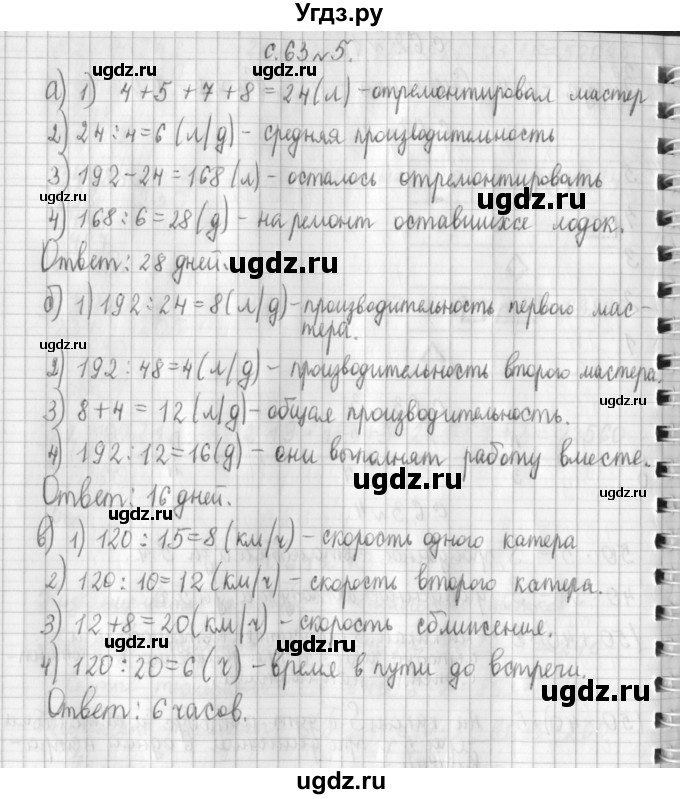 Угдз.ру
с.63 №5.
ugdz.ru ugdz.ru
а) 1) 4+5+7+8=24(л) - отремонтировал мастер
2) 24:4=6 (л/д) - средняя производительность
3) 192-24=168 (л) - осталось отремонтировать
ugdz.ru ugdz.ru
4) 168:6=28 (д) - на ремонт оставшихся лодок.
Ответ: 28 дней.
ugdz.ru
б) 1) 192:24=8(л/д) - производительность первого мас-
тера.
ugdz.ru ugdz.ru
2) 192:48=4(л/д) - производительность второго мастера.
ugdz.ru
3) 8+4=12(л/д) - общая производительность.
4) 192:12=16(д) - они выполнят работу вместе.
ugdz.ru
Ответ: 16 дней.
ugdz.ru
ugdz.ru
в) 1) 120:15=8(км/ч) - скорость одного катера
ugdz.ru
2) 120:10=12(км/ч) - скорость второго катера.
3) 12+8=20(км/ч) - скорость сближения.
ugdz.ru ugdz.ru
4) 120:20=6(ч) - время в пути до встречи.
ugdz.ru
Ответ: 6 часов.
ugdz.ru